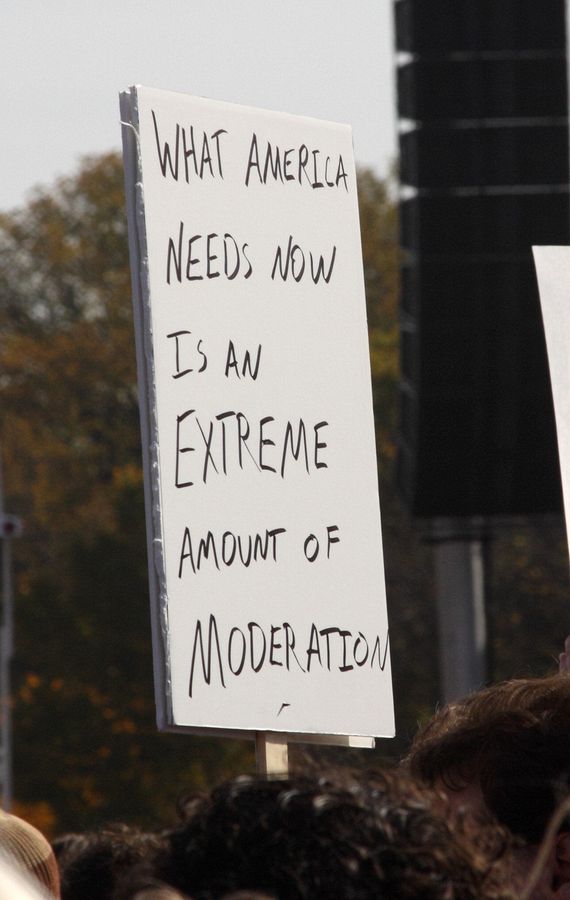 WHAT AMERICA
NEEDS NOW
IS AN
EXTREME
AMOUNT OF
MODERATION